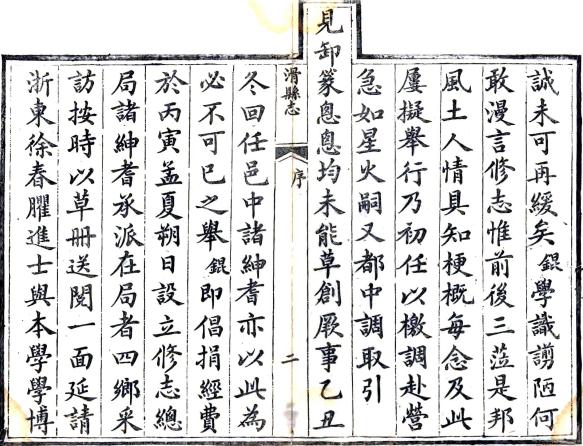 誠未可再緩矣錕學識謭陋何
敢漫言修志惟前後三蒞是邦
風土人情具知梗概每念及此
屢擬舉行乃初任以檄調赴營
急如星火嗣又都中調取引
見卸篆悤悤均未能草創厥事乙丑
滑縣志
序
二
冬回任邑中諸紳耆亦以此為
必不可已之舉錕即倡捐經費
於丙寅孟夏朔日設立修志總
局諸紳耆承派在局者四鄉采
訪按時以草冊送閱一面延請
浙東徐春臞進士與本學學博